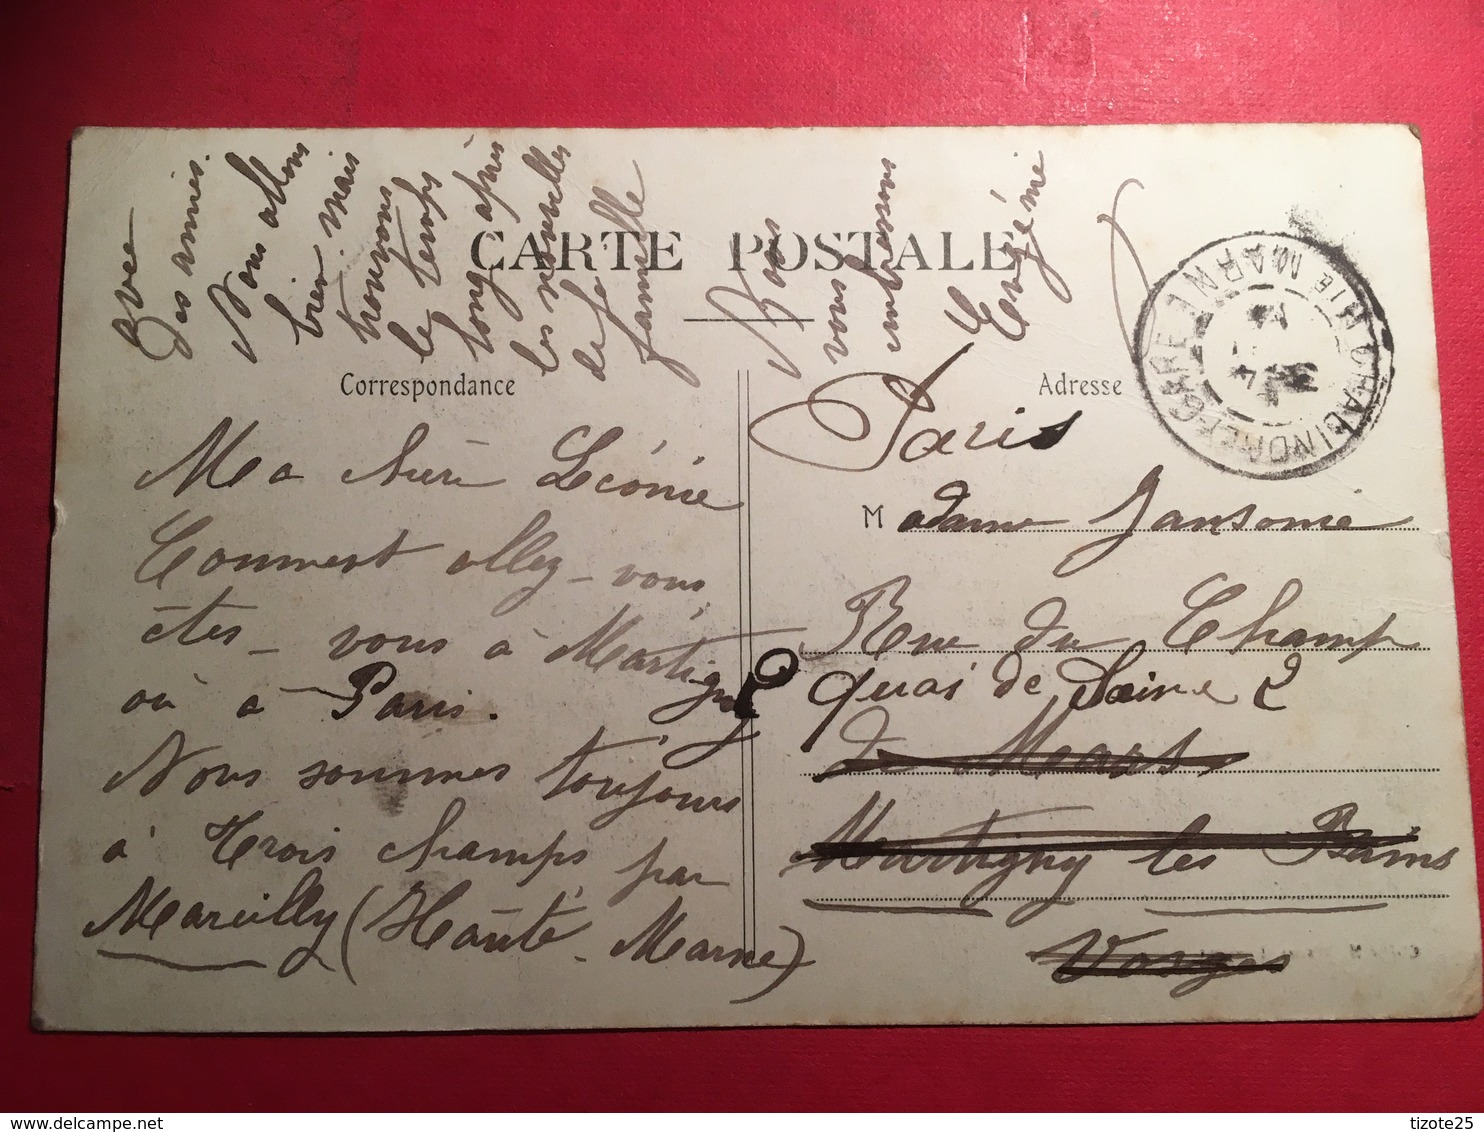 Avec
des amies.
Nous allons
bien. Mais
trouvons
le temps
long après
les nouvelles
de la
famille
Nous
vous
embrassons
Eugénie
CARTE POSTALE
Correspondance
Adresse
Ma chère Léonie
Comment allez-vous
êtes-vous à Martigny
où à Paris.
Nous sommes toujours
à Trois champs par
Mareilly (Haute-Marne)
Paris
Madame Jansonie
Rue du Champ
quai de Seine 2
de Mars
Martigny les Bains
Vosges
GARE
MARNE
tizote25